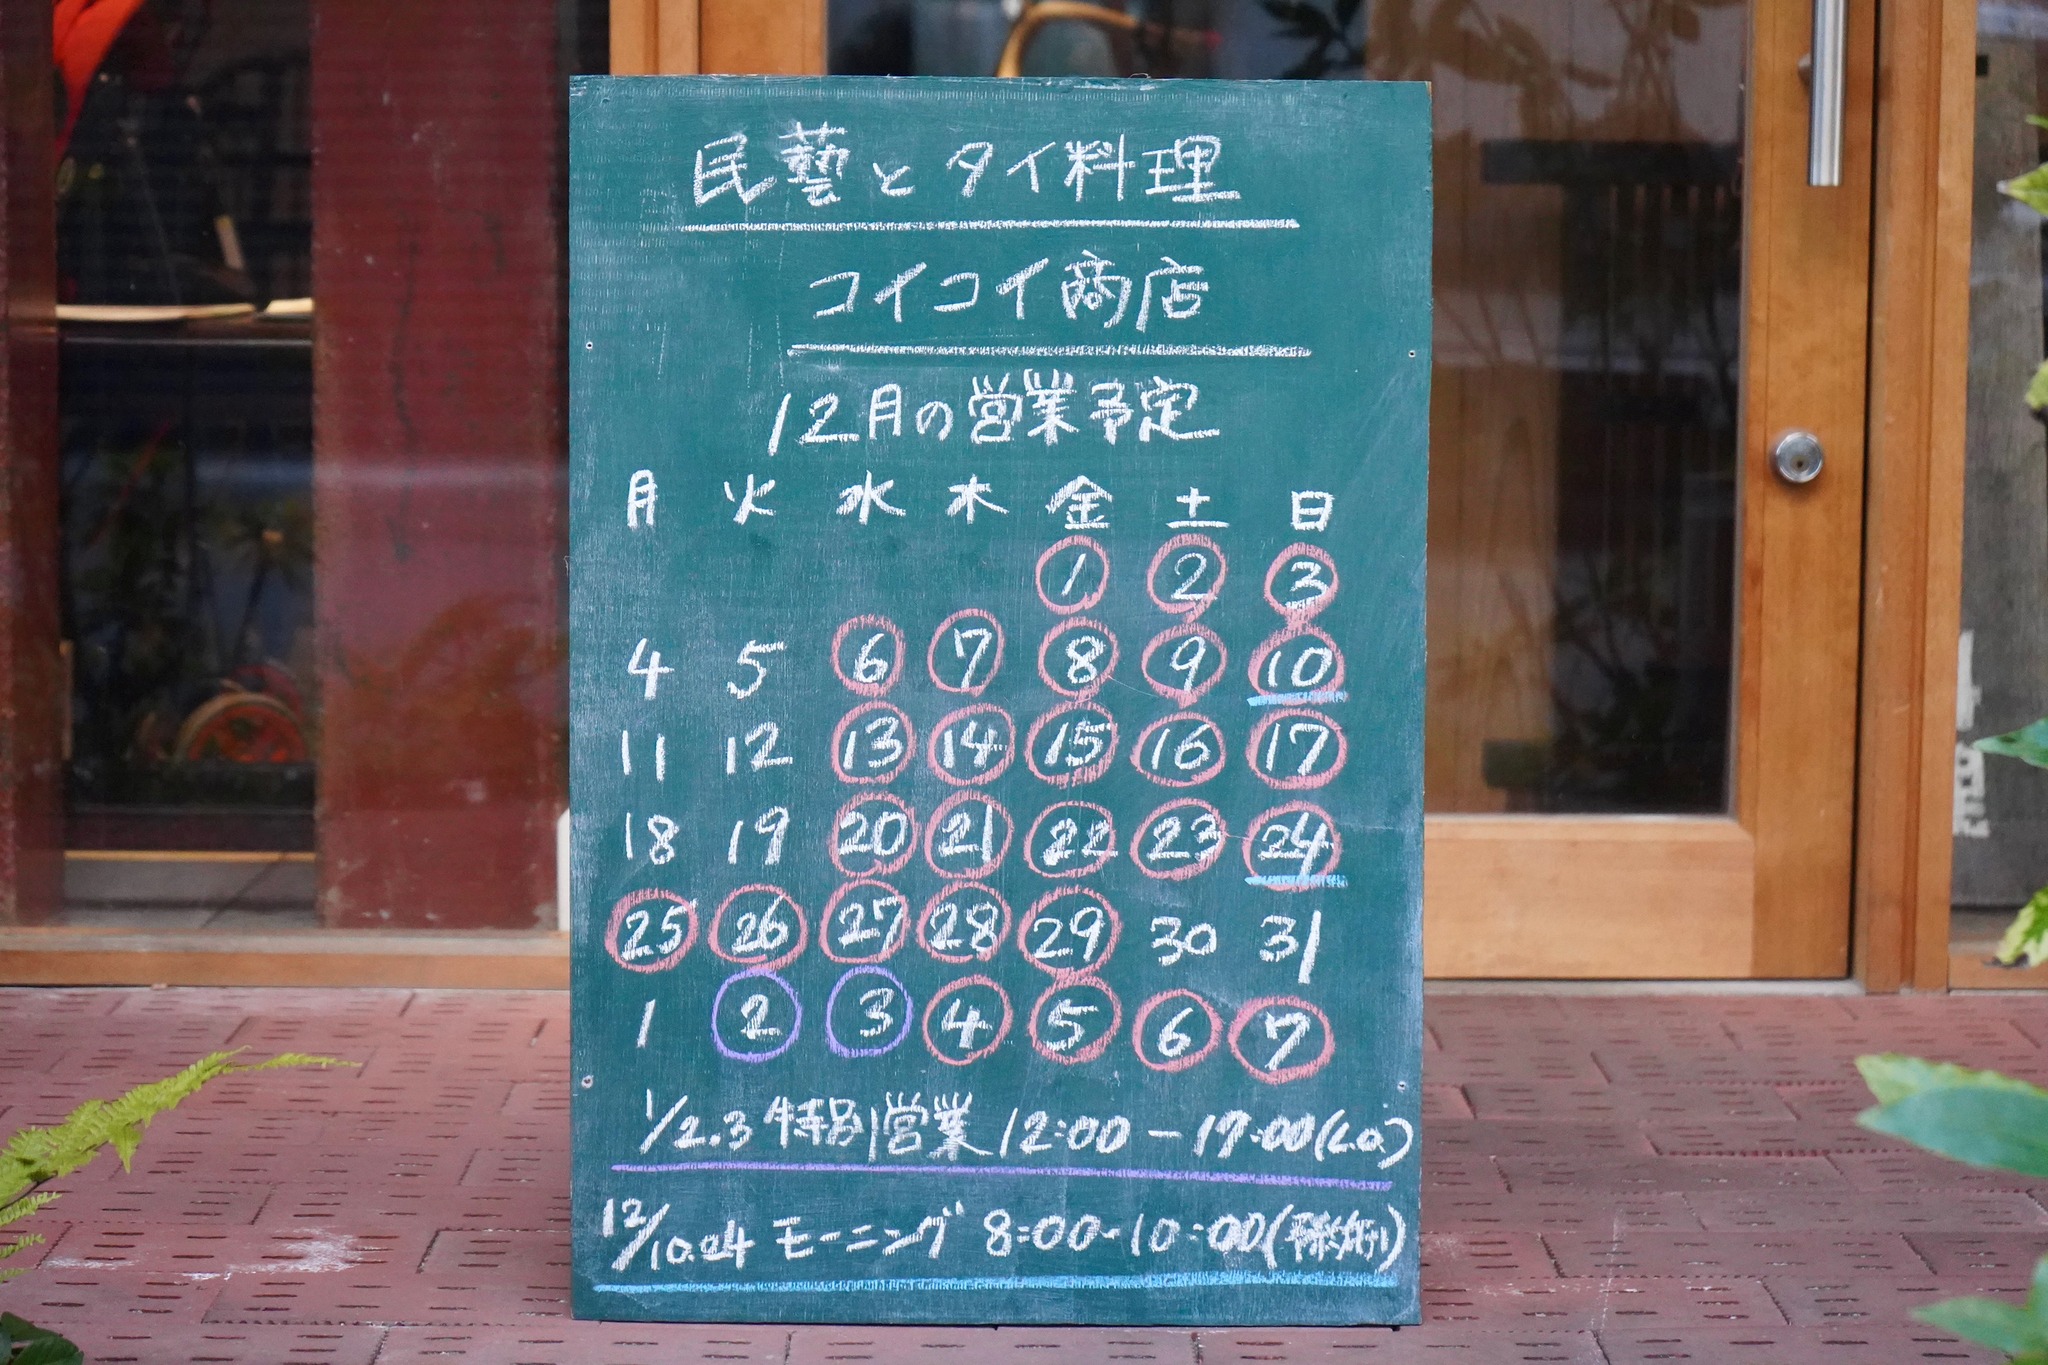 民藝とタイ料理
コイコイ商店
12月の営業予定
月 火 水 木 金 土 日
1 2 3
4 5 6 7 8 9 10
11 12 13 14 15 16 17
18 19 20 21 22 23 24
25 26 27 28 29 30 31
1 2 3 4 5 6 7
1/2.3 特別営業 12:00-17:00(L.O.)
12/10.24 モーニング 8:00-10:00(予約制)